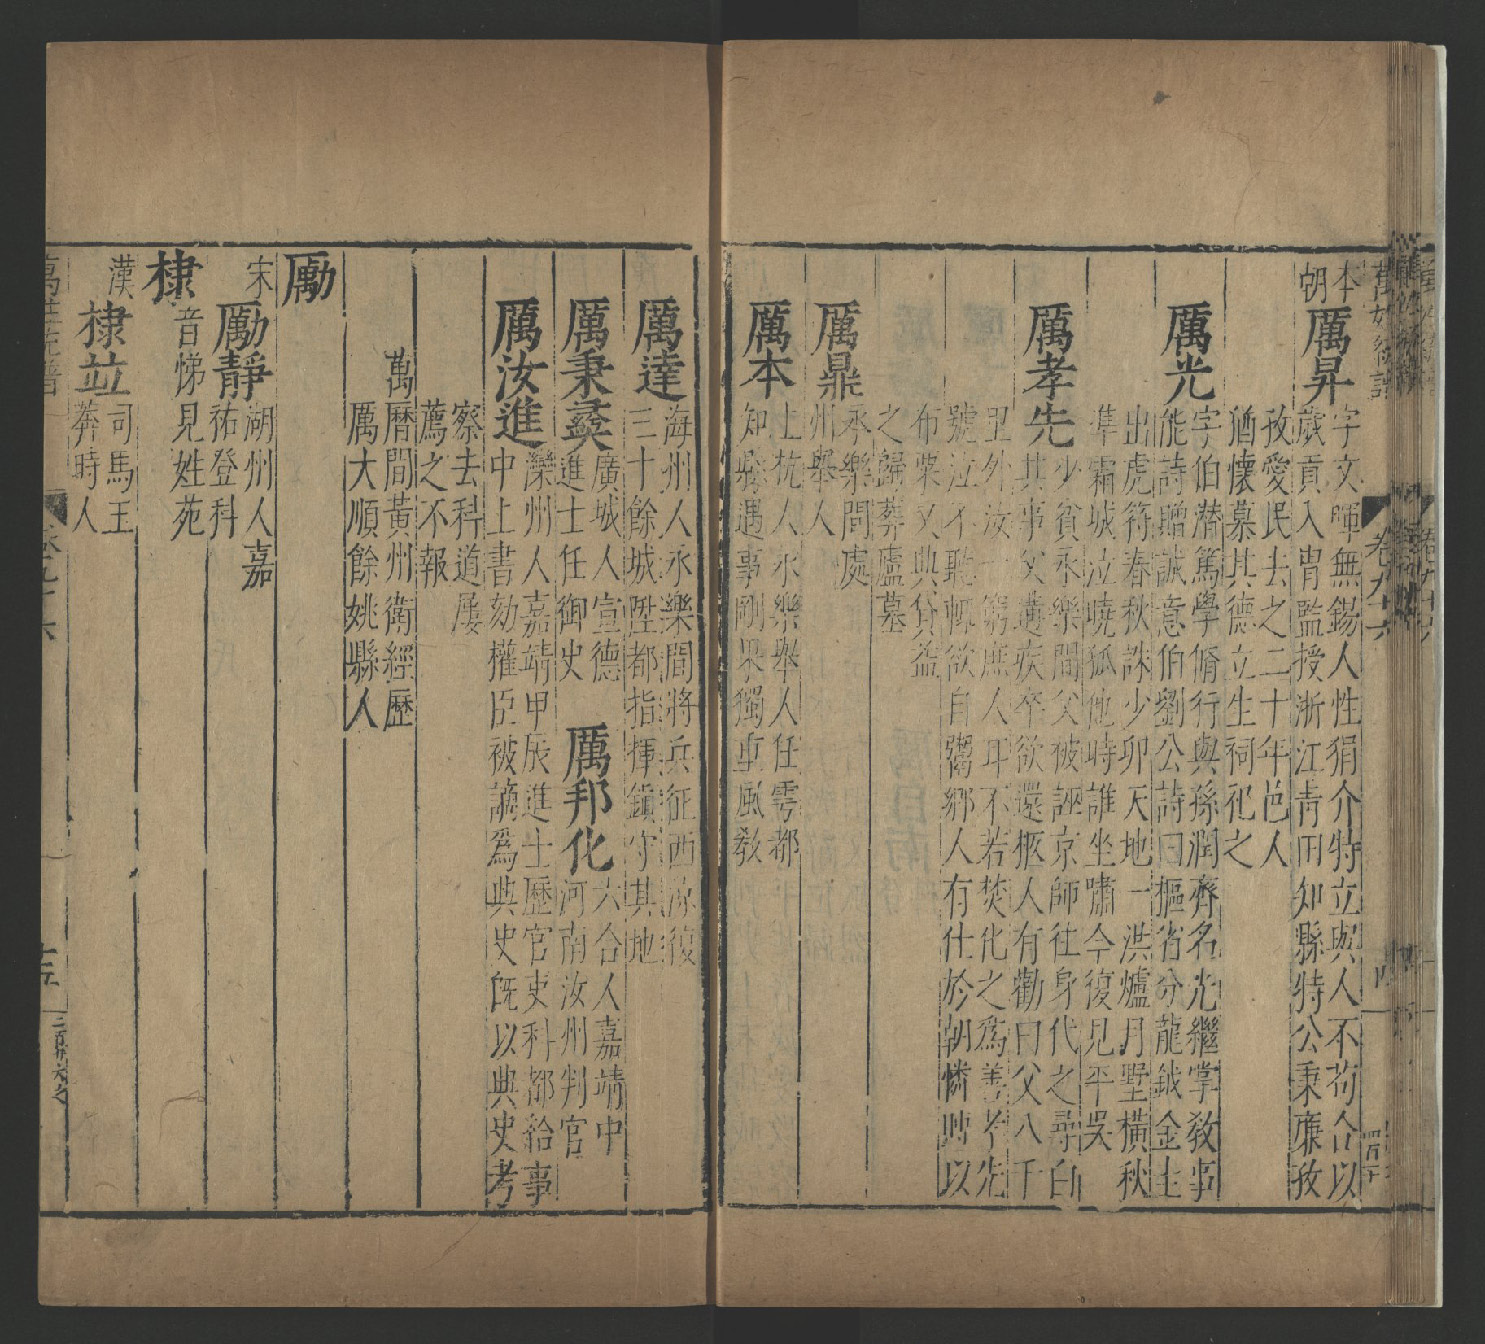 萬姓統譜
卷九十六
本朝
厲昇
字文暉無錫人性狷介特立與人不苟合以
歲貢入胄監授浙江青田知縣特公秉廉孜
孜愛民去之二十年邑人
猶懷慕其德立生祠祀之
厲光
字伯潛篤學脩行與孫潤齊名光繼掌教事
能詩贈誠意伯劉公詩曰樞省分龍鉞金生
出虎符春秋誅少卯天地一洪爐月墅橫秋
隼霜城泣曉狐他時誰坐嘯今復見平吳
厲孝先
少貧永樂間父被誣京師往身代之尋白
其事父遘疾卒欲還柩人有勸曰父八千
里外汝一窮庶人耳不若焚化之爲善孝先
號泣不聽輒欲自鬻鄉人有仕於朝憐時以
布粟又典貸益
之歸葬廬墓
厲鼎
永樂間處
州舉人
厲本
上杭人永樂舉人任雩都
知縣遇事剛果獨重風教
厲達
海州人永樂間將兵征西涼復
三十餘城陞都指揮鎮守其地
厲秉彝
廣城人宣德
進士任御史
厲邦化
六合人嘉靖中
河南汝州判官
厲汝進
灤州人嘉靖甲辰進士歷官吏科都給事
中上書劾權臣被謫爲典史旣以典史考
察去科道屢
薦之不報
萬曆間黃州衛經歷
厲大順餘姚縣人
勵
宋
勵靜
湖州人嘉
祐登科
棣
音悌見姓苑
漢
棣竝
司馬王
莽時人
萬姓統譜
卷九十六